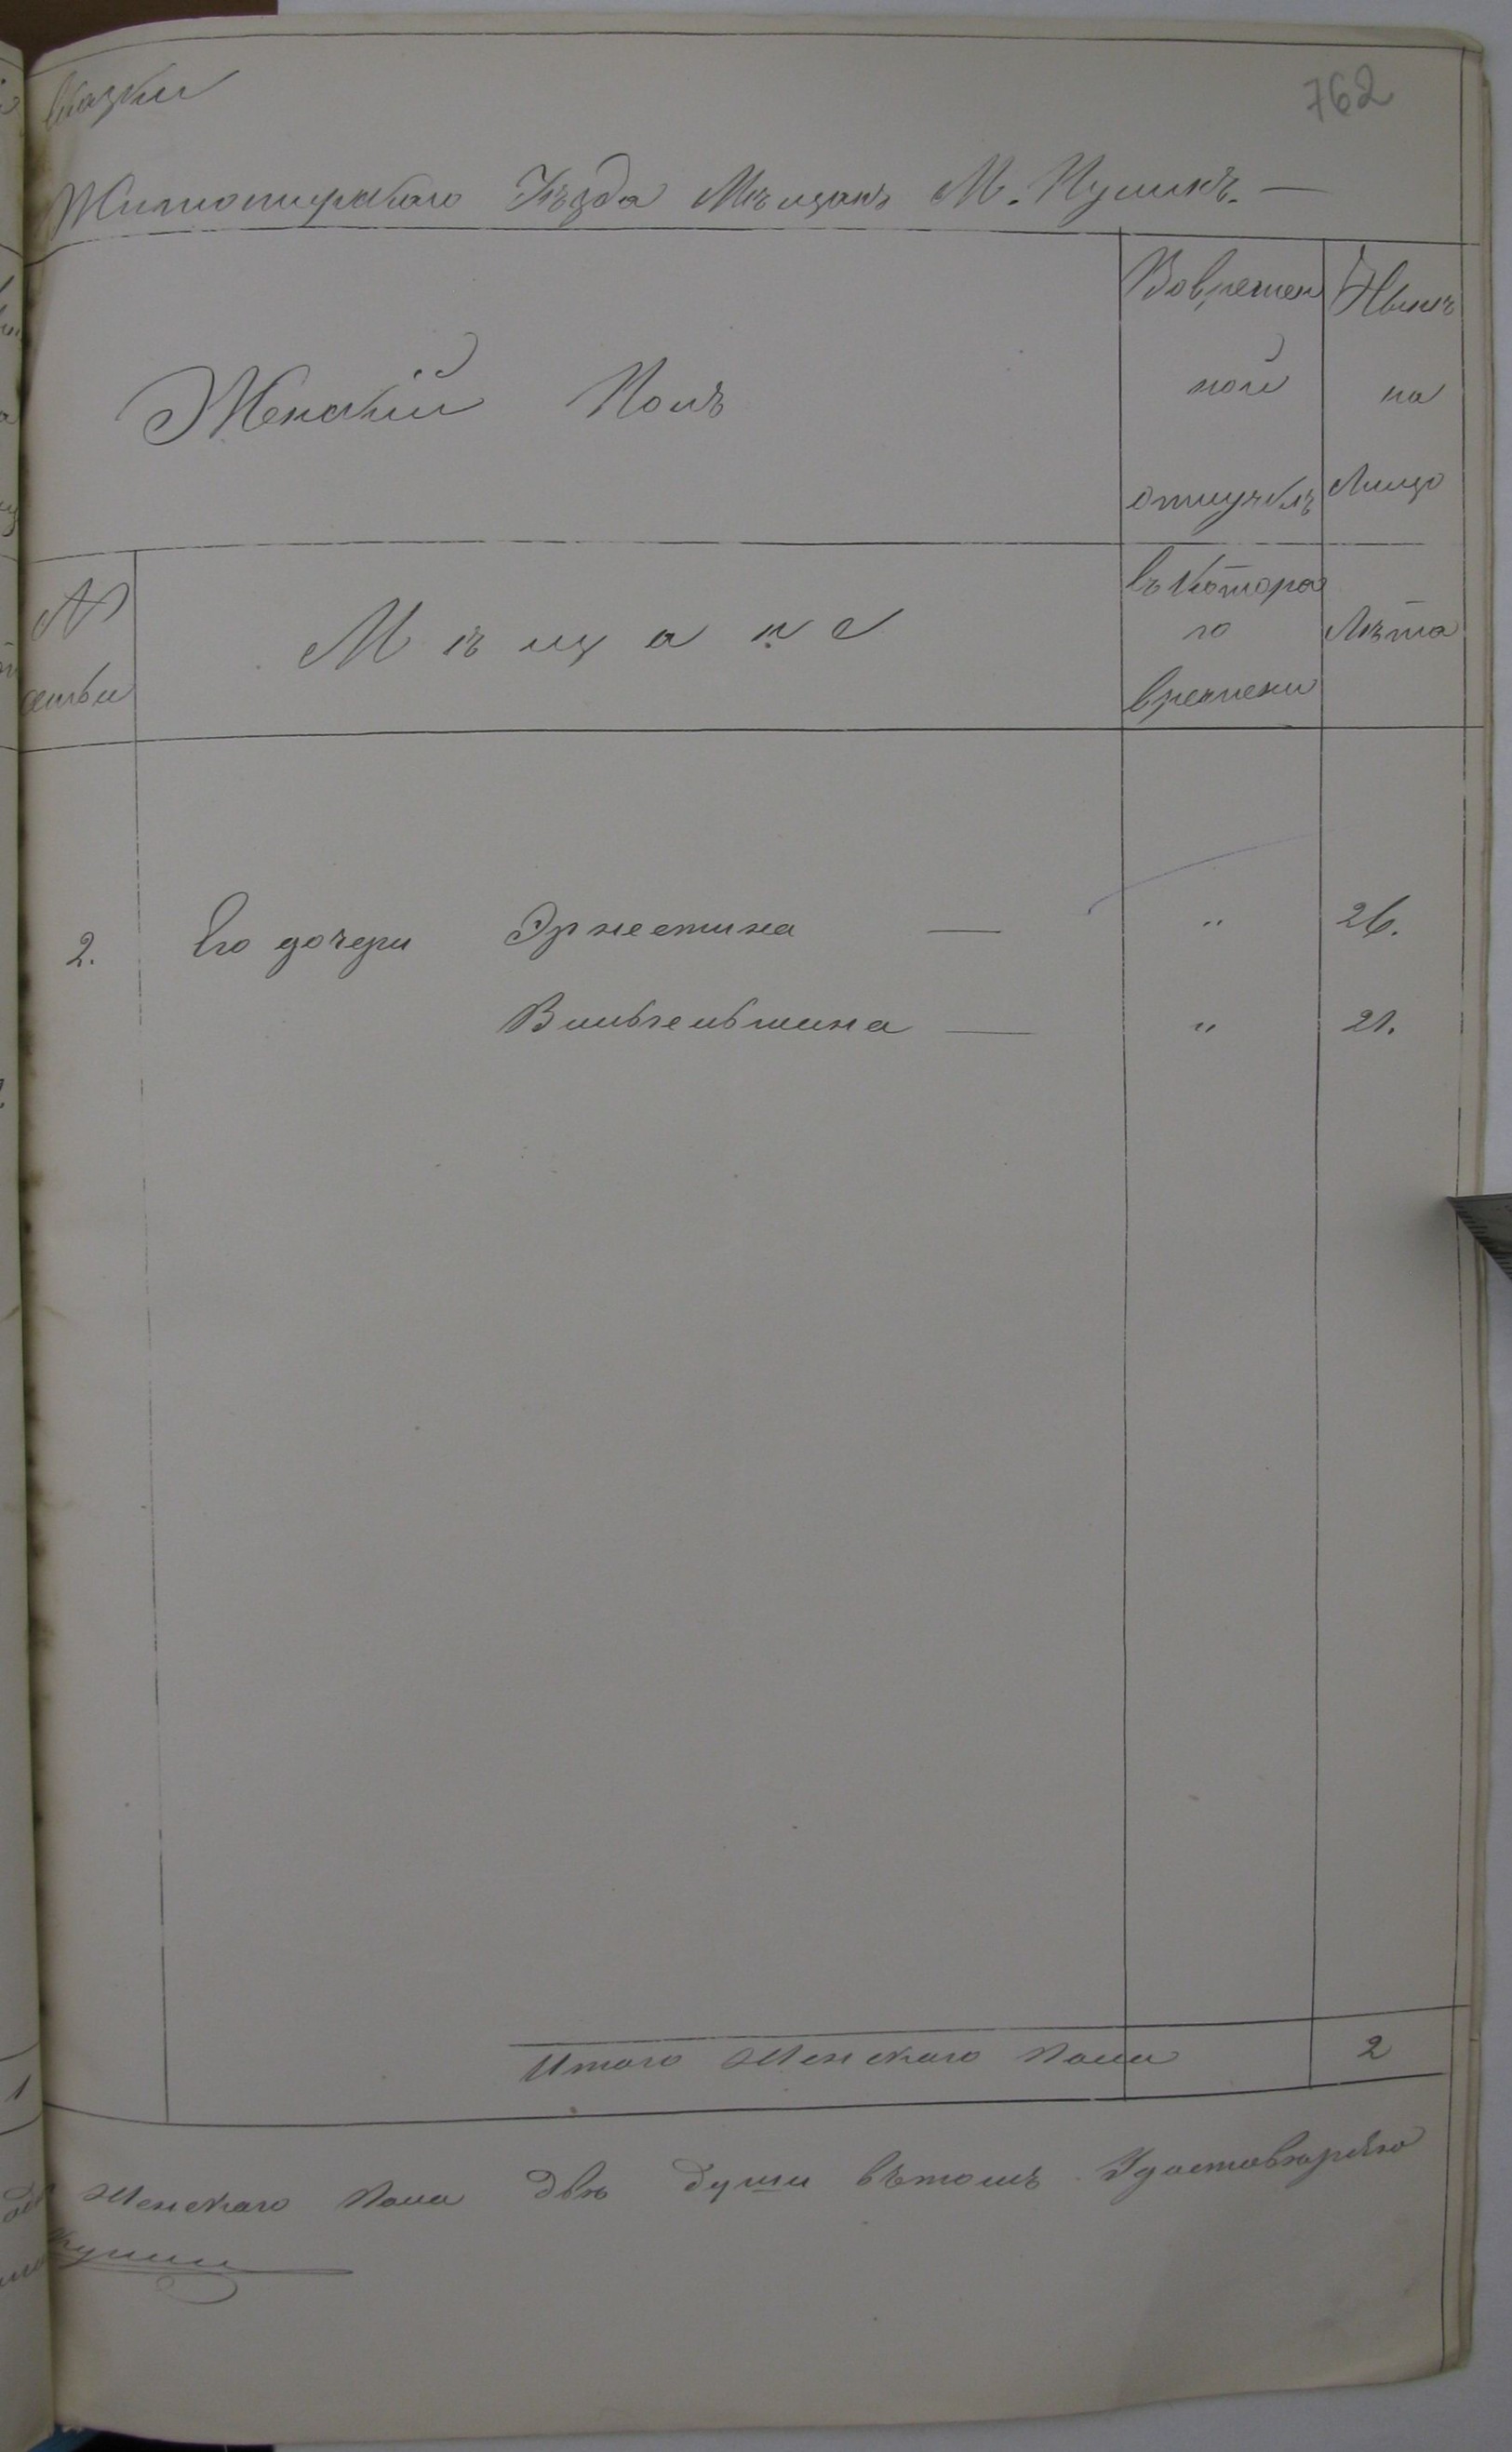 сказки
762
Житомирскаго Уѣзда Мѣщанъ М. Пулинъ. —
Женскій Полъ
Вовремен
ной
отлучкѣ
Нынѣ
на
Лицо
№
семьи
Мѣщане
съ котора
го
времени
Лѣта
2. Его дочери Эрнестина — " 26.
Вильгельмина — " 21.
Итого Женскаго Пола 2
Женскаго Пола двѣ души въ томъ Удостовѣряю